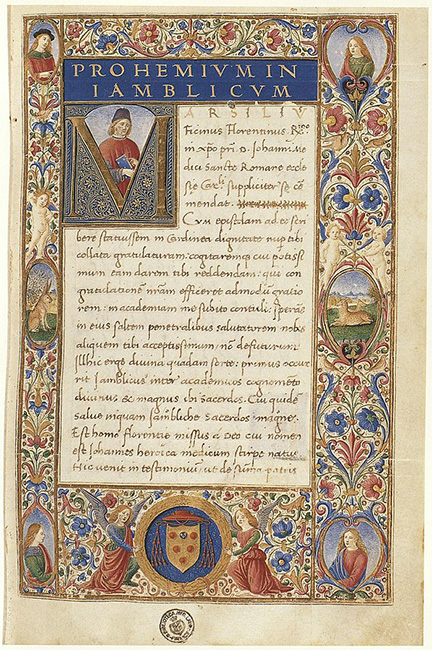 PROHEMIVM IN
IAMBLICVM
MARSILIV
Ficinus Florentinus R.mo
in xpo pri. D. Iohanni Me
dici Sancte Romane eccle
sie Carli suppliciter se cō
mendat.
Cum epistolam ad te scri
bere statuissem in Cardinea dignitate nup tibi
collata gratulaturam: cogitaremq cui potissi
mum eam darem tibi reddendam: qui con
gratulationē nrām efficeret admodū gratio
rem: in academiam me subito contuli: Sperās
in eius saltem penetralibus salutaturem nobis
aliquem tibi acceptissimum nō defuturum:
Illhic ergo divina quadam sorte: primus occur
rit Iamblicus inter academicos cognomēto
divinus & magnus ubi sacerdos. Cui quidē
Salve inquam Iambliche Sacerdos magne.
Est homo Florentie missus a Deo cui nomen
est Iohannes heroica medicum stirpe natus
Hic venit in testimoniū ut de summa patris